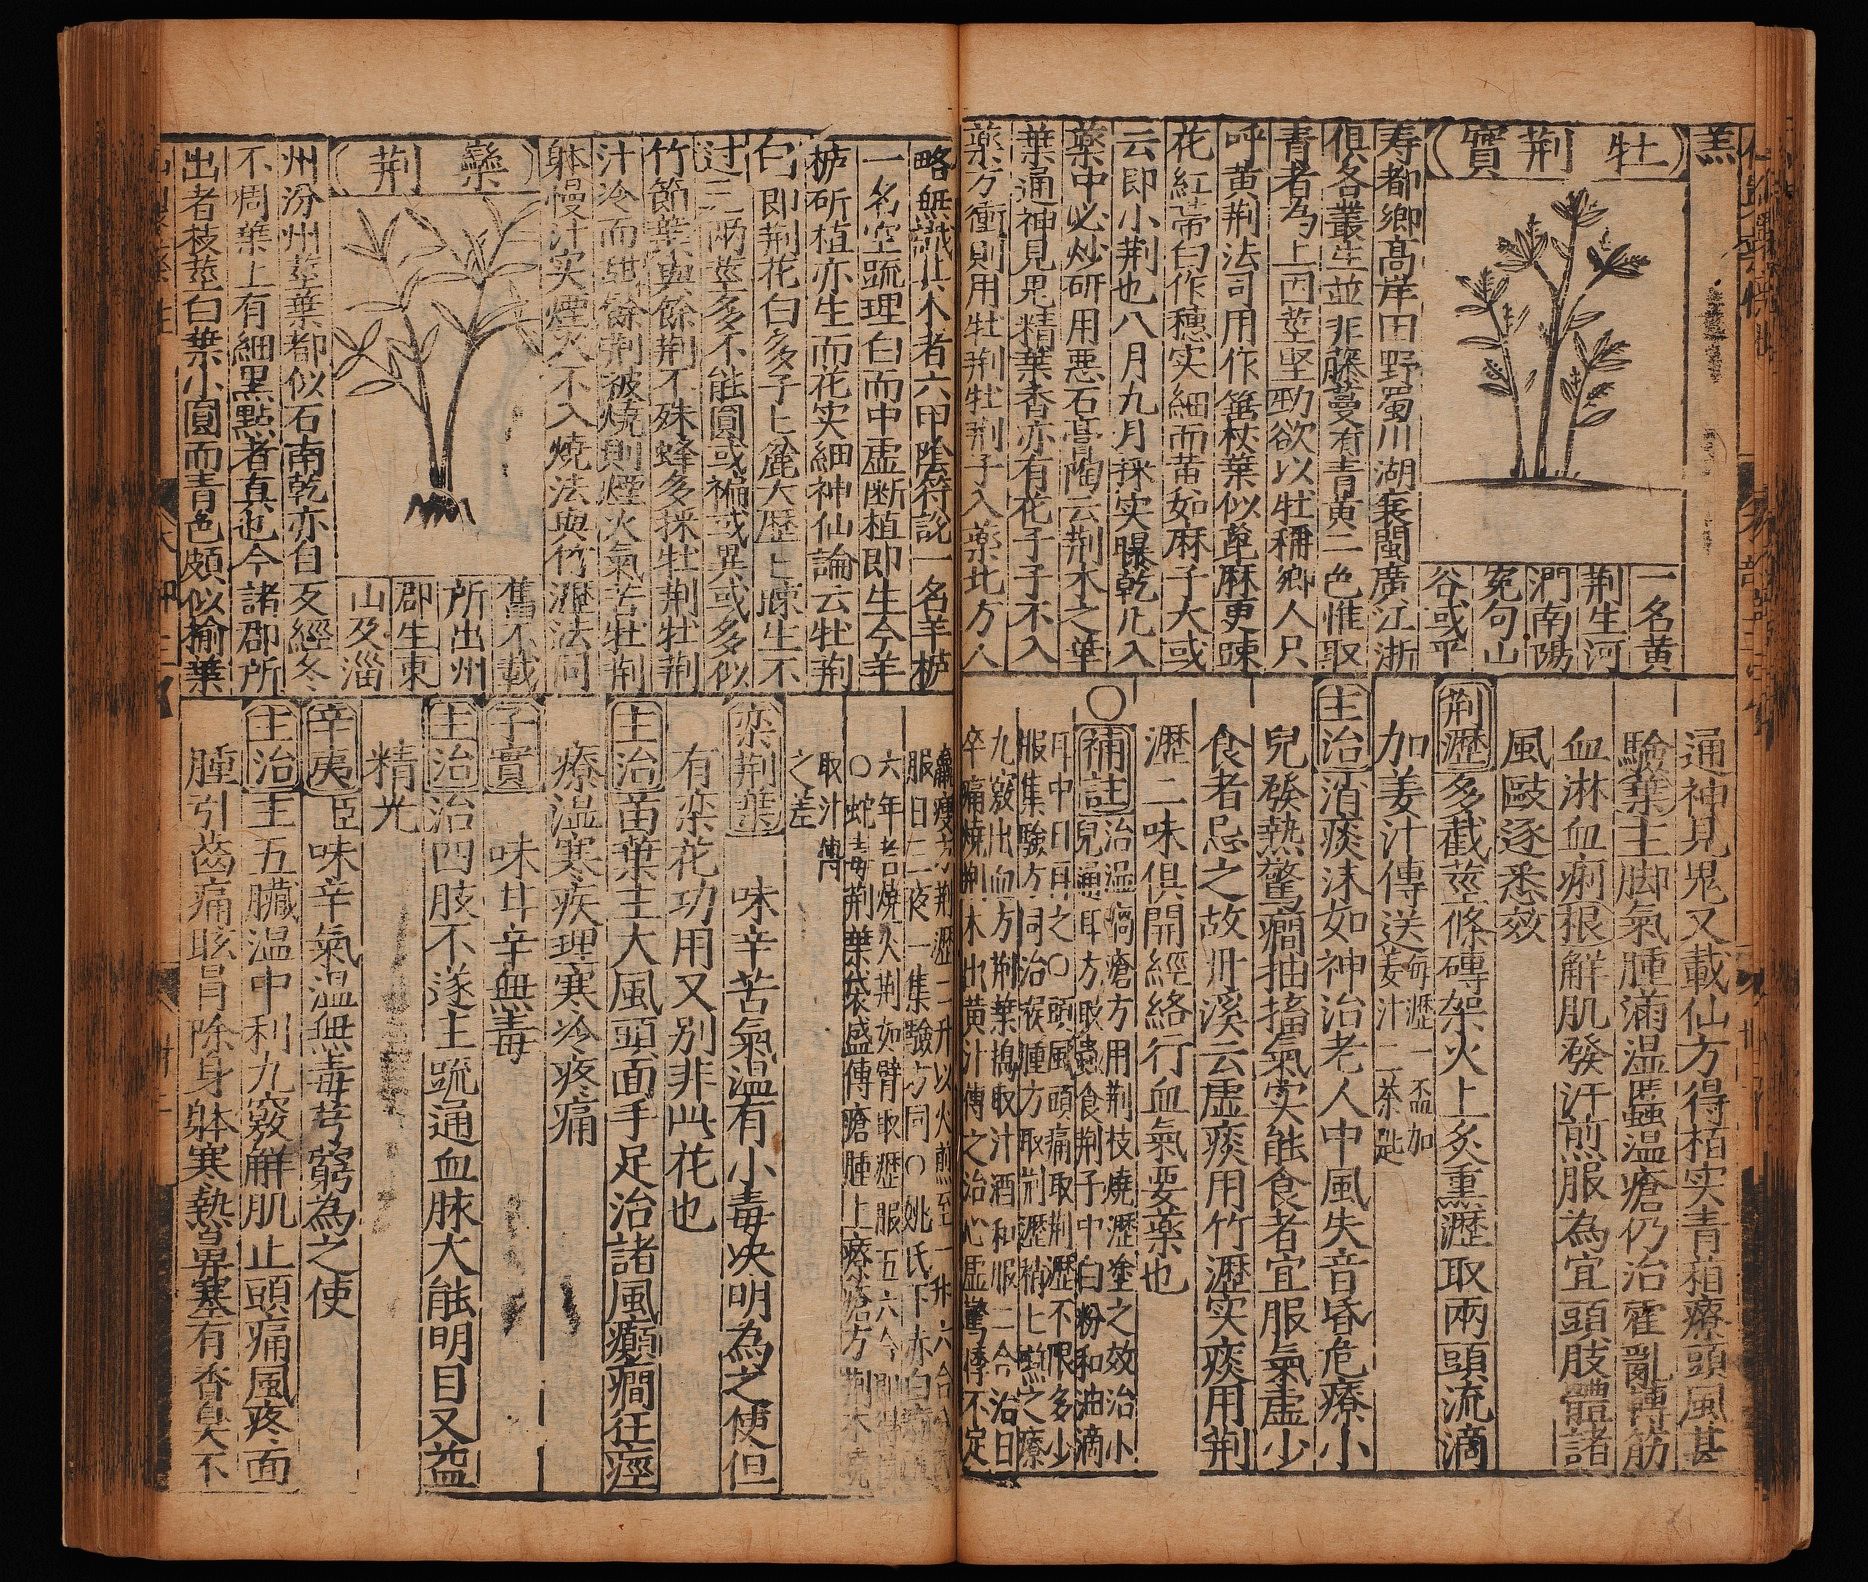 羔
牡荊實
一名黃
荆生河
澗南陽
冤句山
谷或平
寿都鄉高岸田野蜀川湖襄閩廣江浙
俱各叢生並非藤蔓有青黃二色惟取
青者為上因莖坚勁欲以牡稱鄉人只
呼黄荆法司用作箠杖葉似蓖麻更踈
花紅蒂白作穗实細而黄如麻子大或
云即小荆也八月九月採实曝乾凡入
藥中必炒研用悪石膏陶云荆木之華
葉通神見鬼精葉香亦有花子子不入
藥方衝則用牡荆牡荆子入藥北方人
通神見鬼又載仙方得栢实青葙療頭風甚
驗葉主脚氣腫滿温䘌温瘡仍治霍亂轉筋
血淋血痢根解肌發汗煎服為宜頭肢體諸
風毆逐悉效
荆瀝多截莖條磚架火上炙熏瀝取兩頭流滴
加姜汁傳送每瀝一盃加姜汁二茶匙
主治消痰沫如神治老人中風失音昏危療小
兒發熱驚癇抽搐氣实能食者宜服氣虛少
食者忌之故丹溪云虛痰用竹瀝实痰用荆
瀝二味俱開經絡行血氣要藥也
○補註治温病瘡方用荆枝燒瀝塗之效治小
兒通耳方取蟲食荆子中白粉和油滴
耳中日再之○頭風頭痛取荆瀝不限多少
服集驗方同治喉腫方取荆瀝稍七嚥之療
九竅出血方荆葉搗取汁酒和服二合治日
卒痛燒荆木出黄汁傳之治心虛驚悸不定
略無識其木者六甲陰符說一名羊栌
一名空疏理白而中虛断植即生今羊
栌斫植亦生而花实細神仙論云牡荆
白即荆花白多子七麄大歷七踈生不
过三兩莖多不能圓或褊或異或多似
竹節葉與餘荆不殊蜂多採牡荆牡荆
汁冷而甜餘荆被燒則煙火氣苦牡荆
躰慢汁实煙火不入燒法與竹瀝法同
欒荆
舊不載
所出州
郡生東
山及淄
州汾州莖葉都似石南乾亦自反經冬
不凋葉上有細黑點者真也今諸郡所
出者枝莖白葉小圓而青色頗似榆葉
服日二夜一集驗方同○姚氏下赤白痢
六年者燒火荆如臂取瀝服五六合則得
○蛇毒荆葉袋盛傅瘡腫上療瘡方荆木燒
取汁傅
之差
栾荆葉 味辛苦氣温有小毒决明為之使但
有栾花功用又別非此花也
主治苗葉主大風頭面手足治諸風癲癇狂痙
療温寒疾理寒冷疼痛
子實 味甘辛無毒
主治治四肢不遂主疏通血脉大能明目又益
精光
辛夷臣味辛氣温無毒芎藭為之使
主治主五臟温中利九竅觧肌止頭痛風疼面
腫引齒痛眩冒除身躰寒熱鼻塞有香臭不